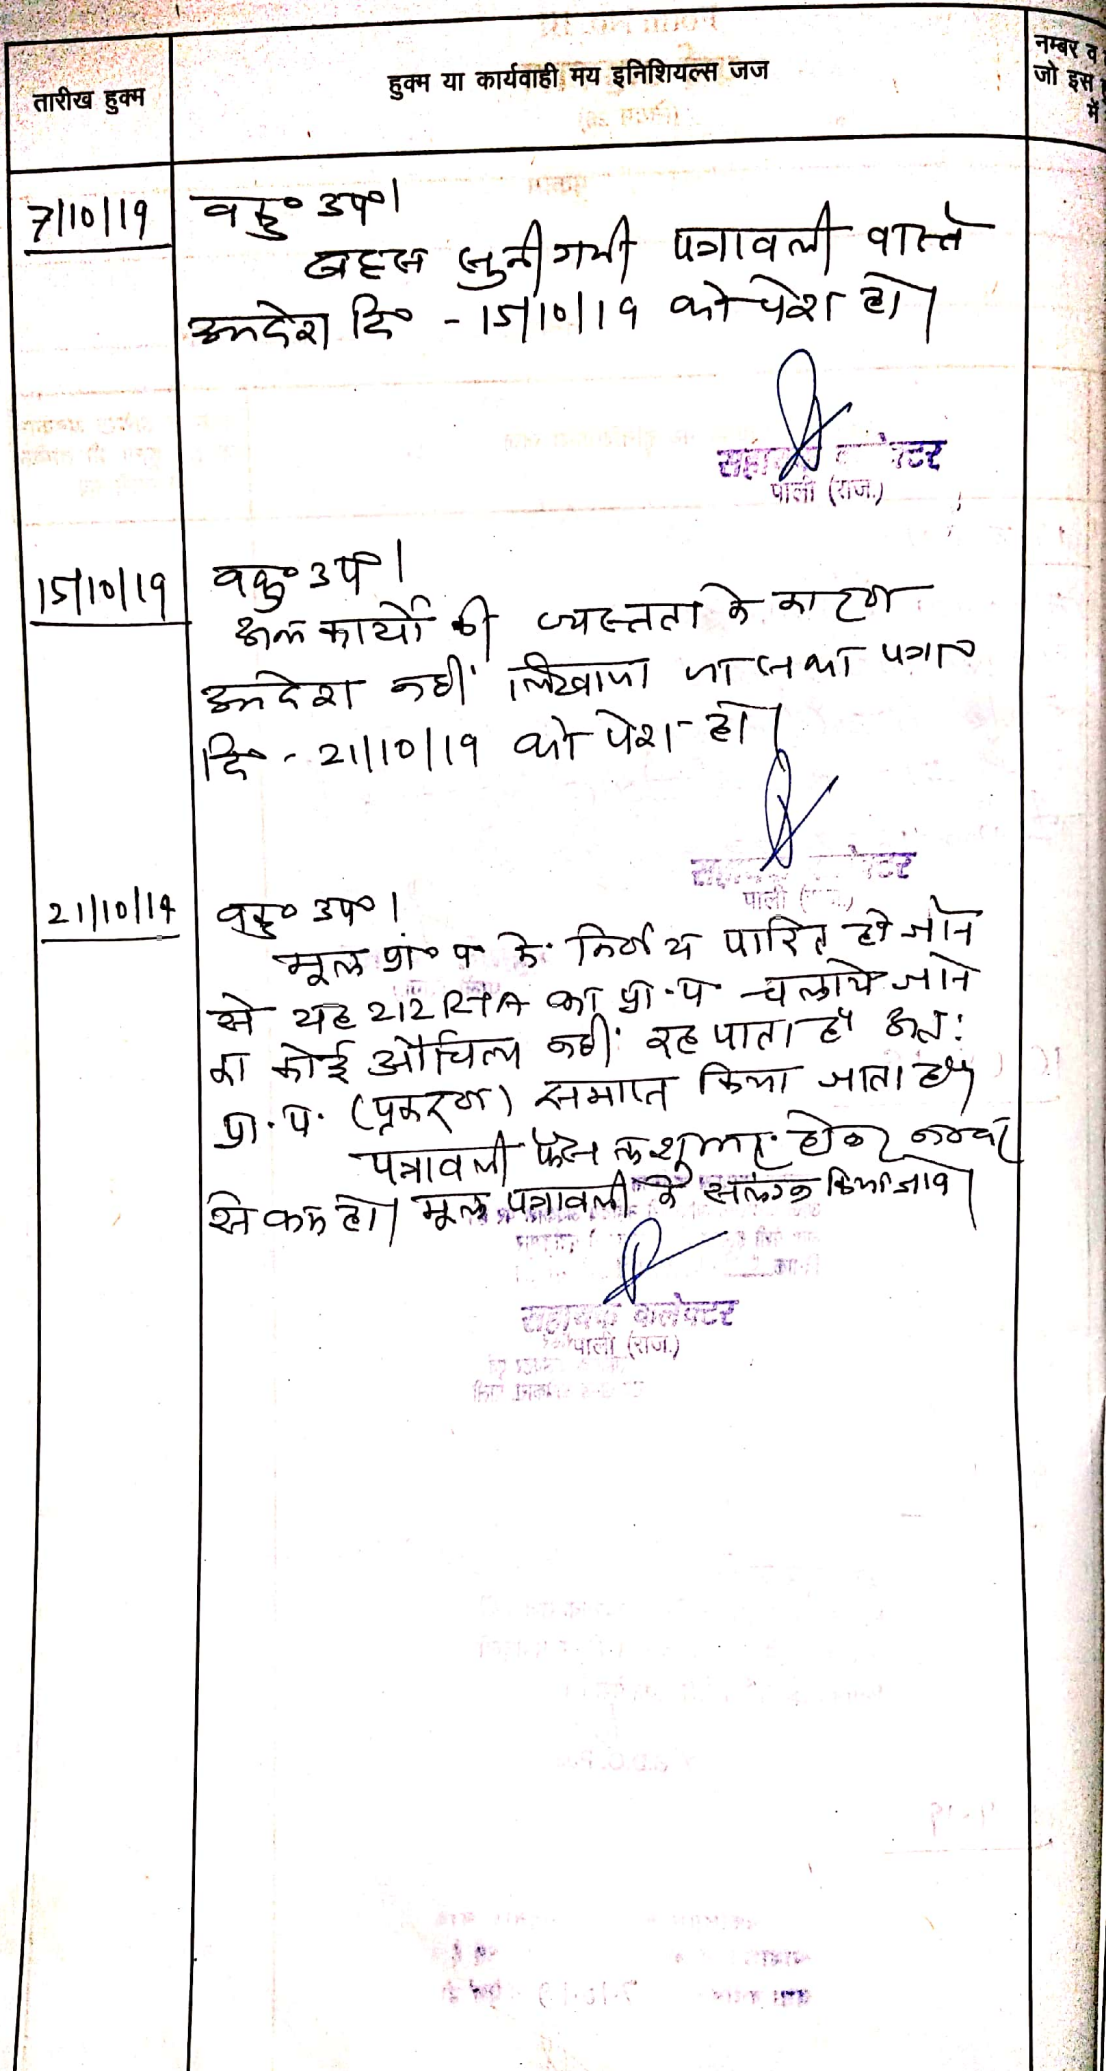 तारीख हुक्म
हुक्म या कार्यवाही मय इनिशियल्स जज
नम्बर व
जो इस
में
7/10/19
वकु० उप०।
बहस सुनी गयी पत्रावली वास्ते
आदेश दि० - 15/10/19 को पेश हो।
सहायक कलेक्टर
पाली (राज.)
15/10/19
वकु० उप०।
अन्य कार्यों की व्यस्तता के कारण
आदेश नहीं लिखाया जा सका पत्रा०
दि० - 21/10/19 को पेश हो।
सहायक कलेक्टर
पाली
21/10/19
वकु० उप०।
मूल प्रा० प० के निर्णय पारित हो जाने
से यह 212 RTA का प्रा.प. चलाये जाने
का कोई औचित्य नहीं रह पाता है अत:
प्रा.प. (प्रकरण) समाप्त किया जाता है।
पत्रावली फैसल शुमार होकर नम्बर
से कम हो। मूल पत्रावली के संलग्न किया जावे।
सहायक कलेक्टर
पाली (राज.)